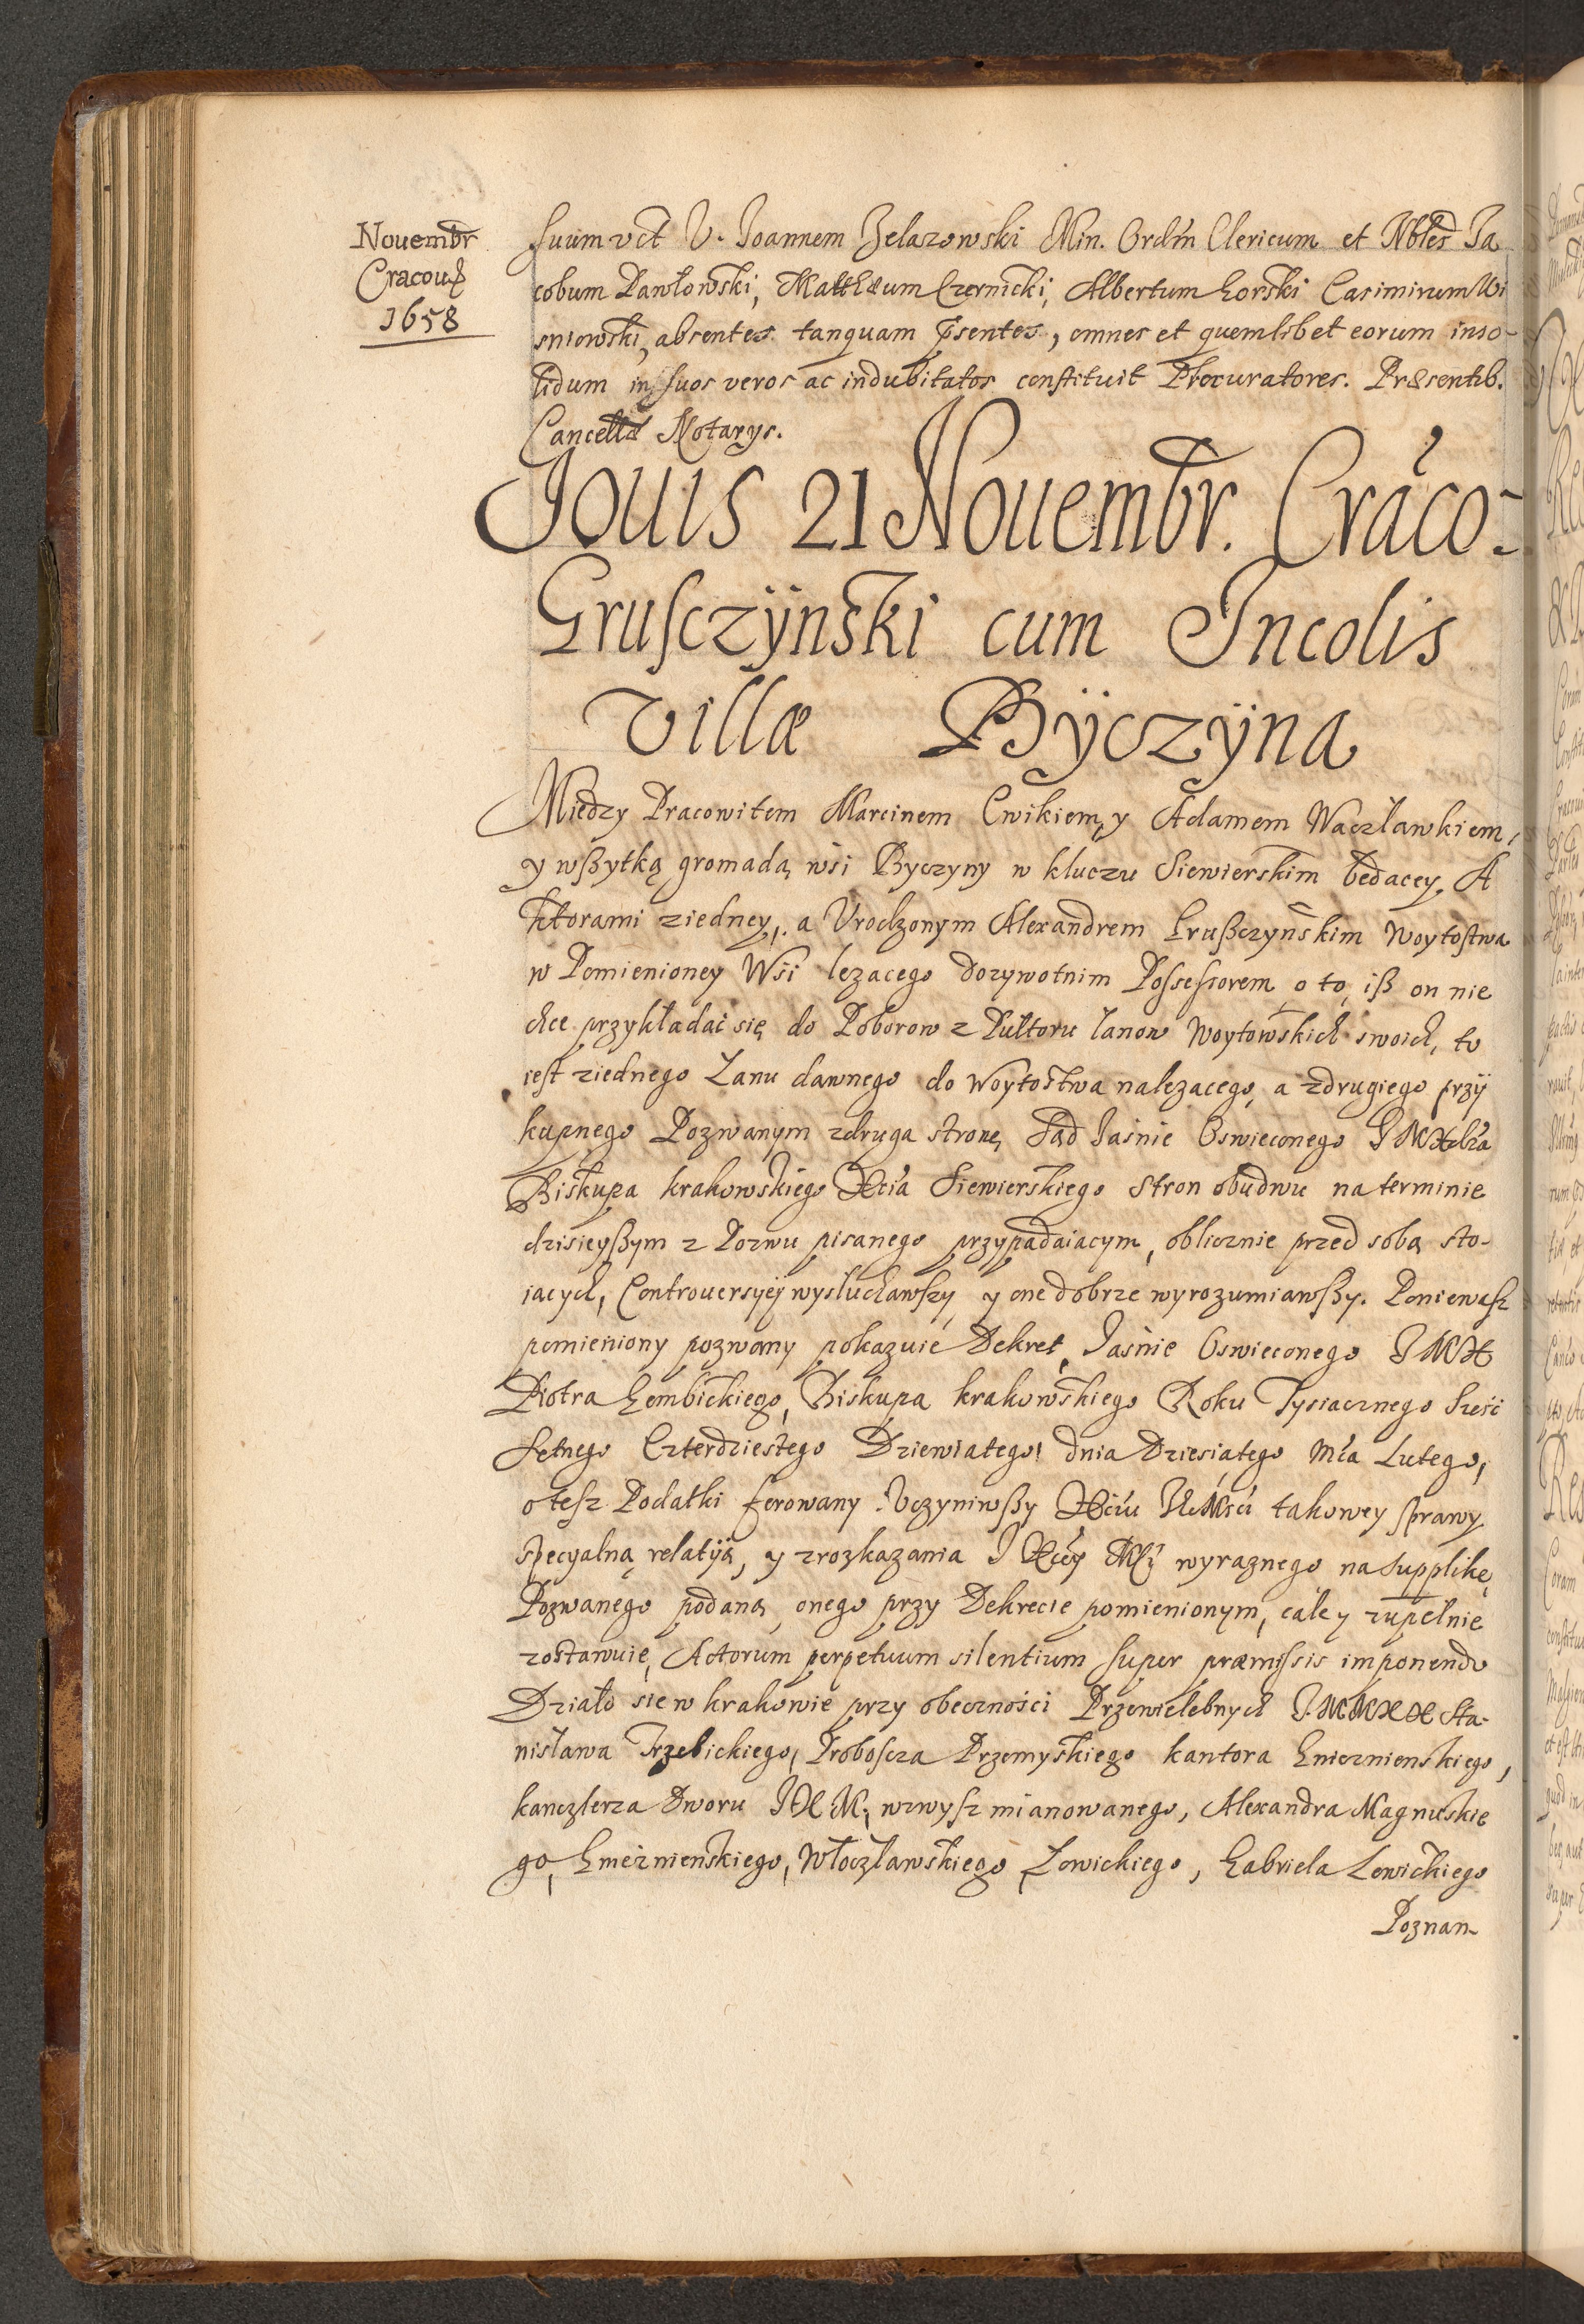 Nouembr
Cracouę
1658
suum vct V. Joannem Zelazowski Min. Ordīn Clericum et Nbles Ja
cobum Pawłowski, Matthæum Czernicki, Albertum Gorski Casimirum Wi
sniowski, absentes tanquam p̃sentes, omnes et quemlibet eorum inso-
lidum in suos veros ac indubitatos constituit Procuratores. Præsentib.
Cancellæ Notarys.
Jouis 21 Nouembr. Craco:
Gruſczÿnski cum Incolis
villæ Bÿczÿna
Miedzy Pracowitem Marcinem Cwikiem, y Adamem Waczławkiem,
y wßytką gromadą wsi Byczyny w kluczu Siewierskim będacey, A
ktorami ziedney, a Vrodzonym Alexandrem Grußczyńskim Woytostwa
w Pomienioney Wsi lezacego dozywotnim Possessorem, o to, iß on nie
chce przykładać się do Poborow z Pułtoru łanow Woytowskich swoich, to
iest ziednego Łanu dawnego do Woytostwa nalezacego, a zdrugiego przÿ
kupnego Pozwanym zdruga stronę, Sąd Jaśnie Oswieconego J M Xdza
Biskupa krakowskiego Xcia Siewierskiego Stron obudwu na terminie
dzisieyßym z Pozwu pisanego przypadaiacym, oblicznie przed sobą sto-
iacych, Controuersyey wysłuchawszy, y one dobrze wyrozumiawßy. Poniewasz
pomieniony pozwany pokazuie Dekret, Jaśnie Oswieconego J M X
Piotra Gembickiego, Biskupa krakowskiego Roku Tysiacznego Sześć
Setnego Czterdziestego Dziewiatego, dnia Dziesiątego Mca Lutego,
o tesz Podatki ferowany. Vczyniwßy Xciu JeMsci takowey sprawy
specyalną relatÿą, y z rozkazania J Xcey Mści wyraznego na Supplikę
Pozwanego podaną, onego przy Dekrecie pomienionym, cale y zupełnie
zostawuie, Actorum perpetuum silentium super præmissis imponendo
Działo sie w krakowie przy obecności Przewielebnych J.M M X X Sta-
nisława Trzebickiego, Proboscza Przemyskiego kantora Gnieznienskiego,
kanczlerza Dworu J X M, wzwysz mianowanego, Alexandra Magnuskie
go, Gnieznienskiego, Włoczławskiego, Łowickiego, Gabriela Łowickiego
Poznan-